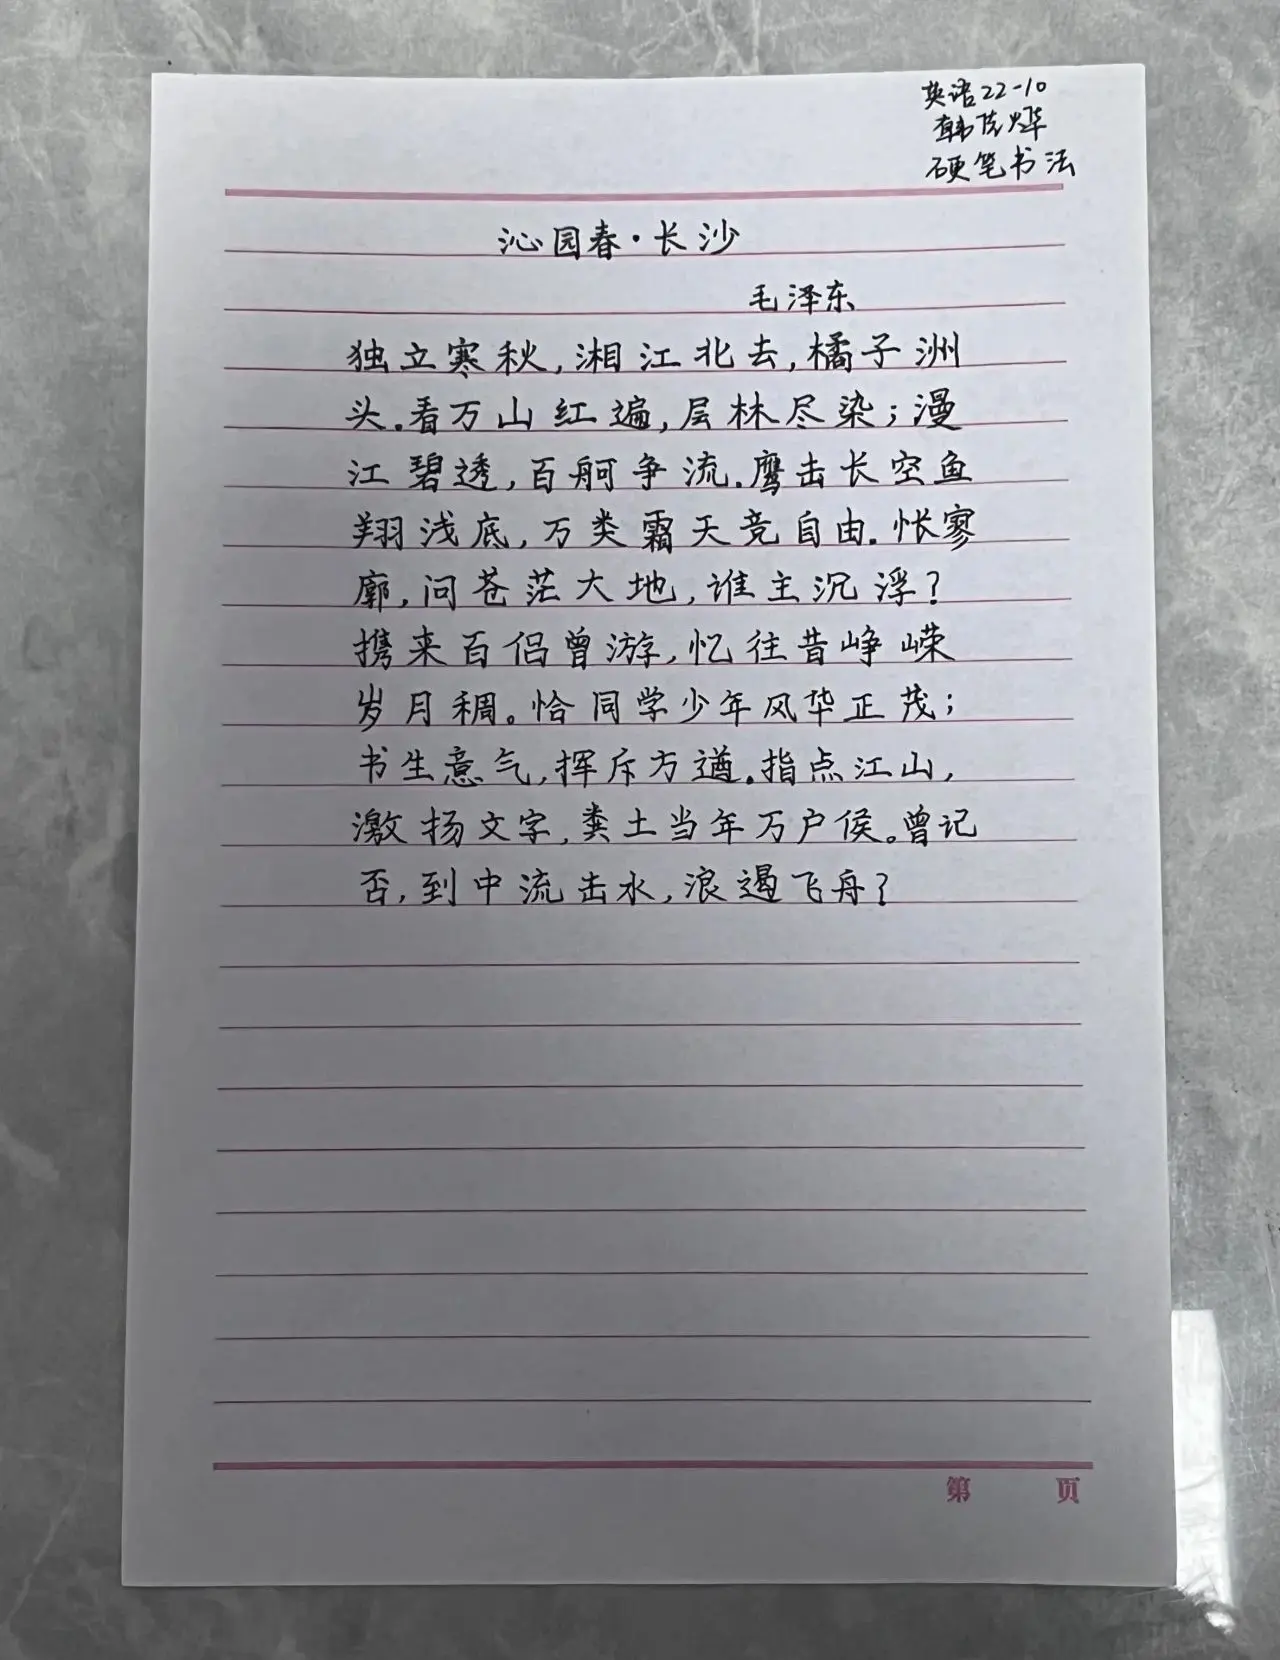 英语22-10
韩 烨
硬笔书法
沁园春·长沙
毛泽东
独立寒秋,湘江北去,橘子洲
头.看万山红遍,层林尽染;漫
江碧透,百舸争流.鹰击长空鱼
翔浅底,万类霜天竞自由.怅寥
廓,问苍茫大地,谁主沉浮?
携来百侣曾游,忆往昔峥嵘
岁月稠。恰同学少年风华正茂;
书生意气,挥斥方遒.指点江山,
激扬文字,粪土当年万户侯。曾记
否,到中流击水,浪遏飞舟?
第 页